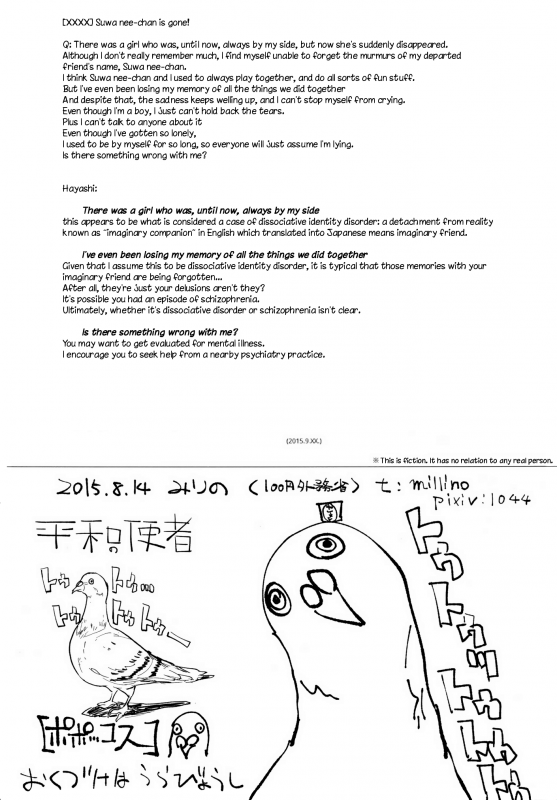 [XXXX] Suwa nee-chan is gone!
Q: There was a girl who was, until now, always by my side, but now she's suddenly disappeared.
Although I don't really remember much, I find myself unable to forget the murmurs of my departed
friend's name, Suwa nee-chan.
I think Suwa nee-chan and I used to always play together, and do all sorts of fun stuff.
But I've even been losing my memory of all the things we did together
And despite that, the sadness keeps welling up, and I can't stop myself from crying.
Even though I'm a boy, I just can't hold back the tears.
Plus I can't talk to anyone about it
Even though I've gotten so lonely,
I used to be by myself for so long, so everyone will just assume I'm lying.
Is there something wrong with me?
Hayashi:
There was a girl who was, until now, always by my side
this appears to be what is considered a case of dissociative identity disorder: a detachment from reality
known as "imaginary companion" in English which translated into Japanese means imaginary friend.
I've even been losing my memory of all the things we did together
Given that I assume this to be dissociative identity disorder, it is typical that those memories with your
imaginary friend are being forgotten...
After all, they're just your delusions aren't they?
It's possible you had an episode of schizophrenia.
Ultimately, whether it's dissociative disorder or schizophrenia isn't clear.
Is there something wrong with me?
You may want to get evaluated for mental illness.
I encourage you to seek help from a nearby psychiatry practice.
(2015.9.XX.)
※This is fiction. It has no relation to any real person.
2015.8.14 みりの (100円外務省) t: millino
pixiv:1044
平和の使者
トゥ トゥ...
トゥ トゥ トゥ
トゥ
トゥッ
トゥ
トゥ
トゥ
[ポポッコス]
おくづけは うらびょうし